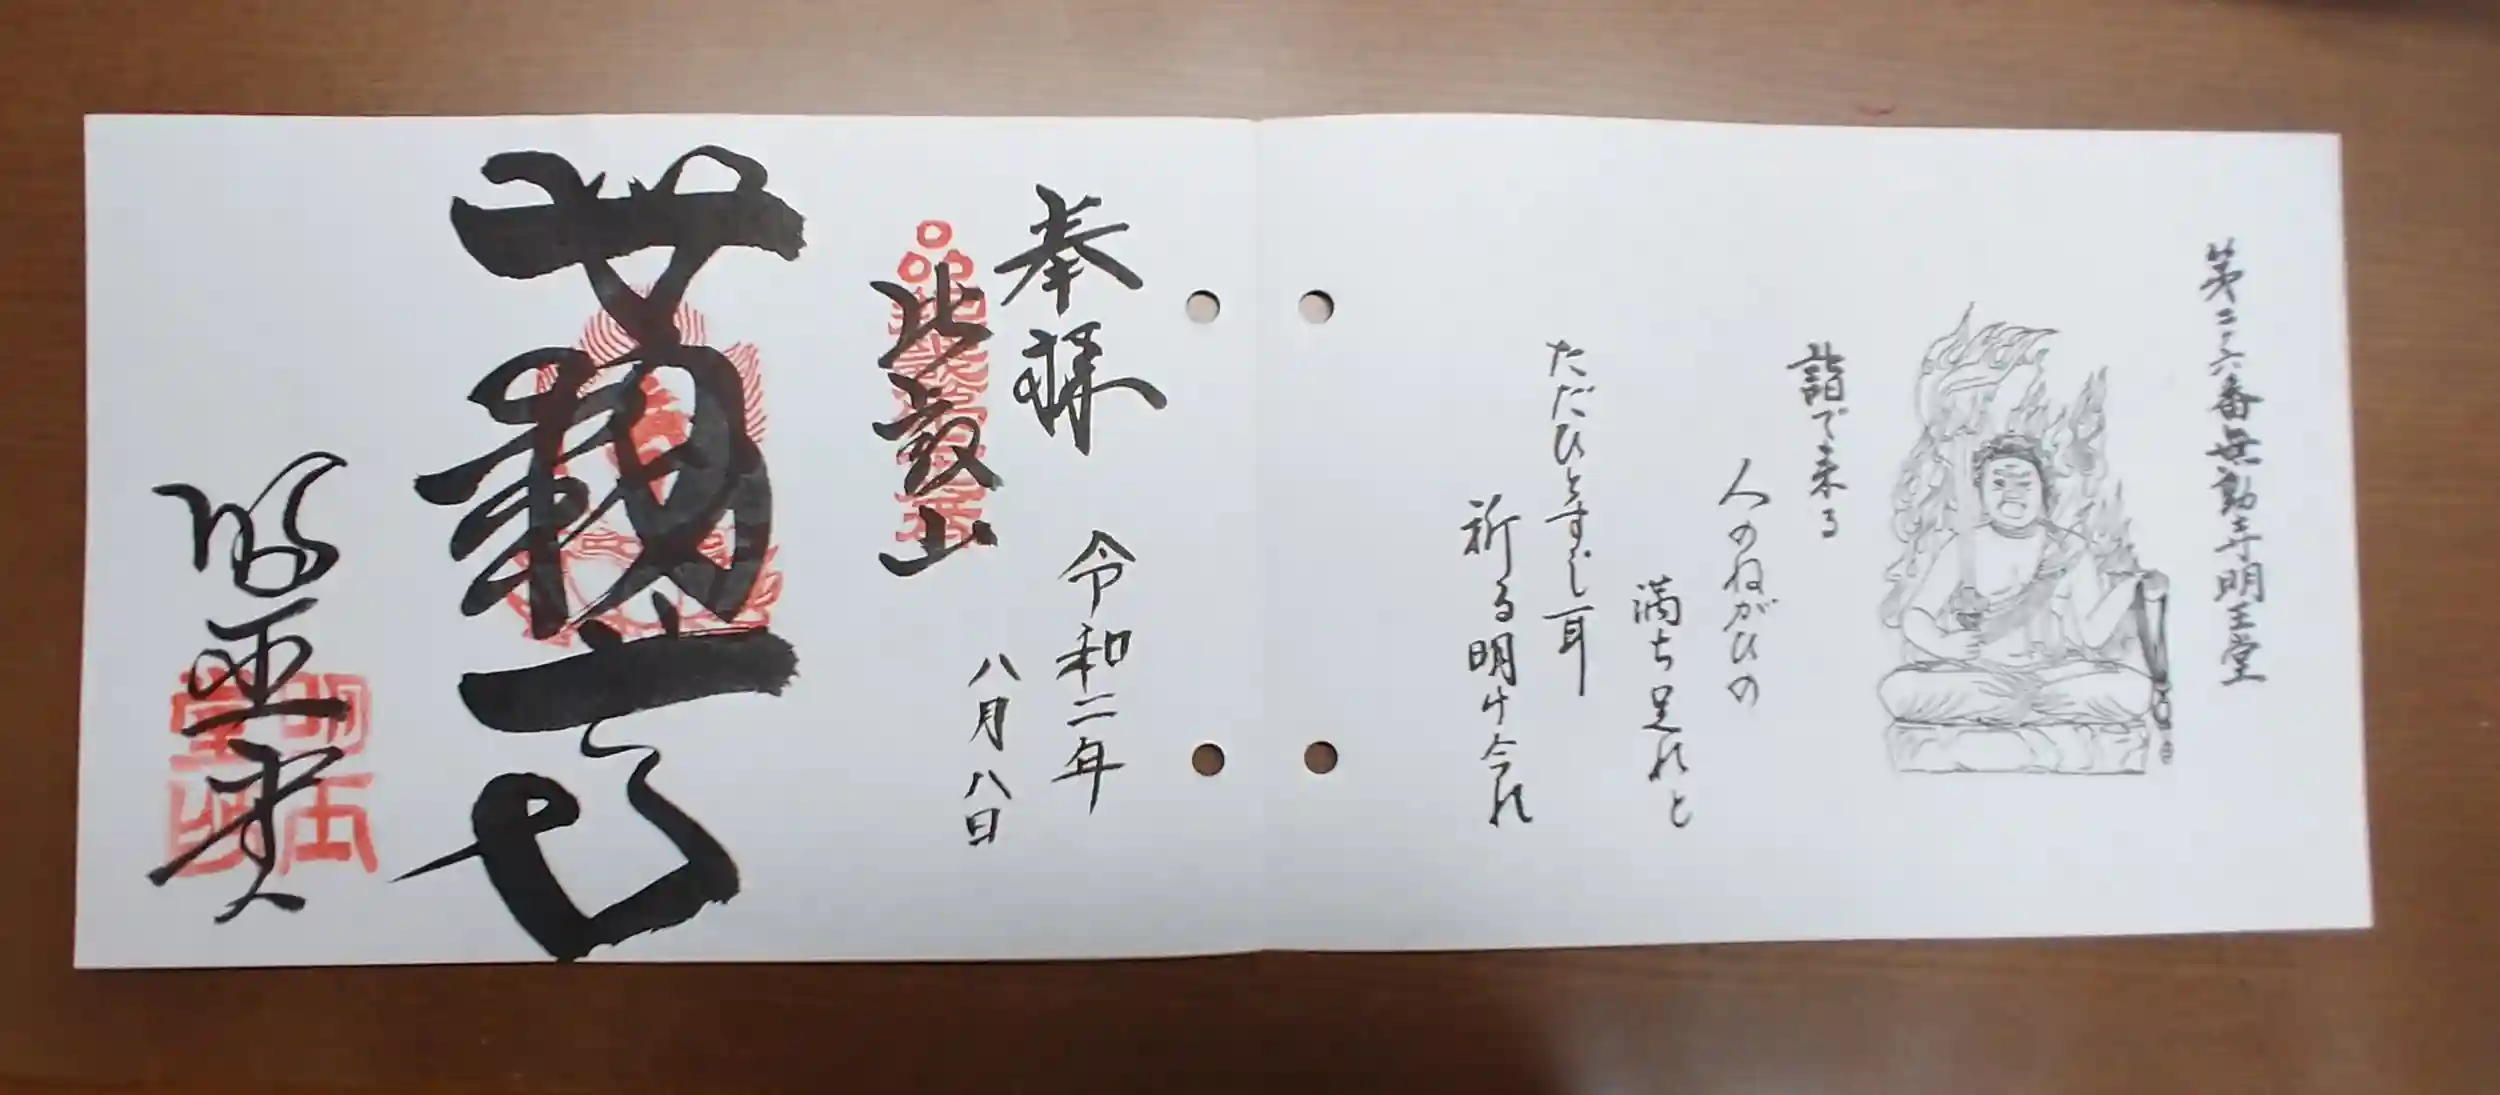 第二六番無動寺明王堂
詣で来る
人のねがひの
満ち足れと
ただひとすじ耳
祈る明け今れ
奉拝 令和二年
八月八日
比叡山
明王堂
明王
堂印